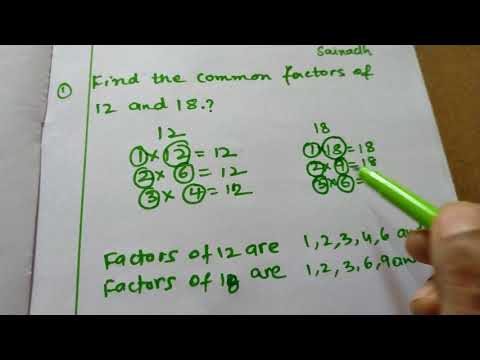 Sainadh
① Find the common factors of
12 and 18.?
12
1 × 12 = 12
2 × 6 = 12
3 × 4 = 12
18
1 × 18 = 18
2 × 9 = 18
3 × 6 =
Factors of 12 are 1, 2, 3, 4, 6 an
Factors of 18 are 1, 2, 3, 6, 9 an